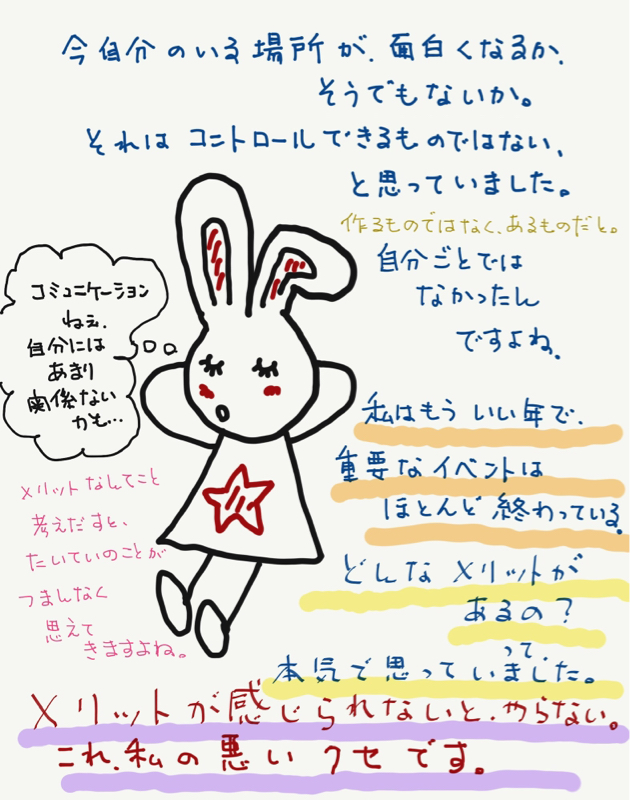 今自分のいる場所が、面白くなるか、
そうでもないか。
それは コントロールできるものではない、
と思っていました。
作るものではなく、あるものだと。
自分ごとでは
なかったん
ですよね。
コミュニケーション
ねぇ、
自分には
あまり
関係ない
かも…
私はもう いい年で、
重要なイベントは
ほとんど 終わっている。
どんなメリットが
あるの?
って、
本気で思っていました。
メリットなんてこと
考えだすと、
たいていのことが
つまんなく
思えて
きますよね。
メリットが感じられないと、やらない。
これ、私の悪いクセです。